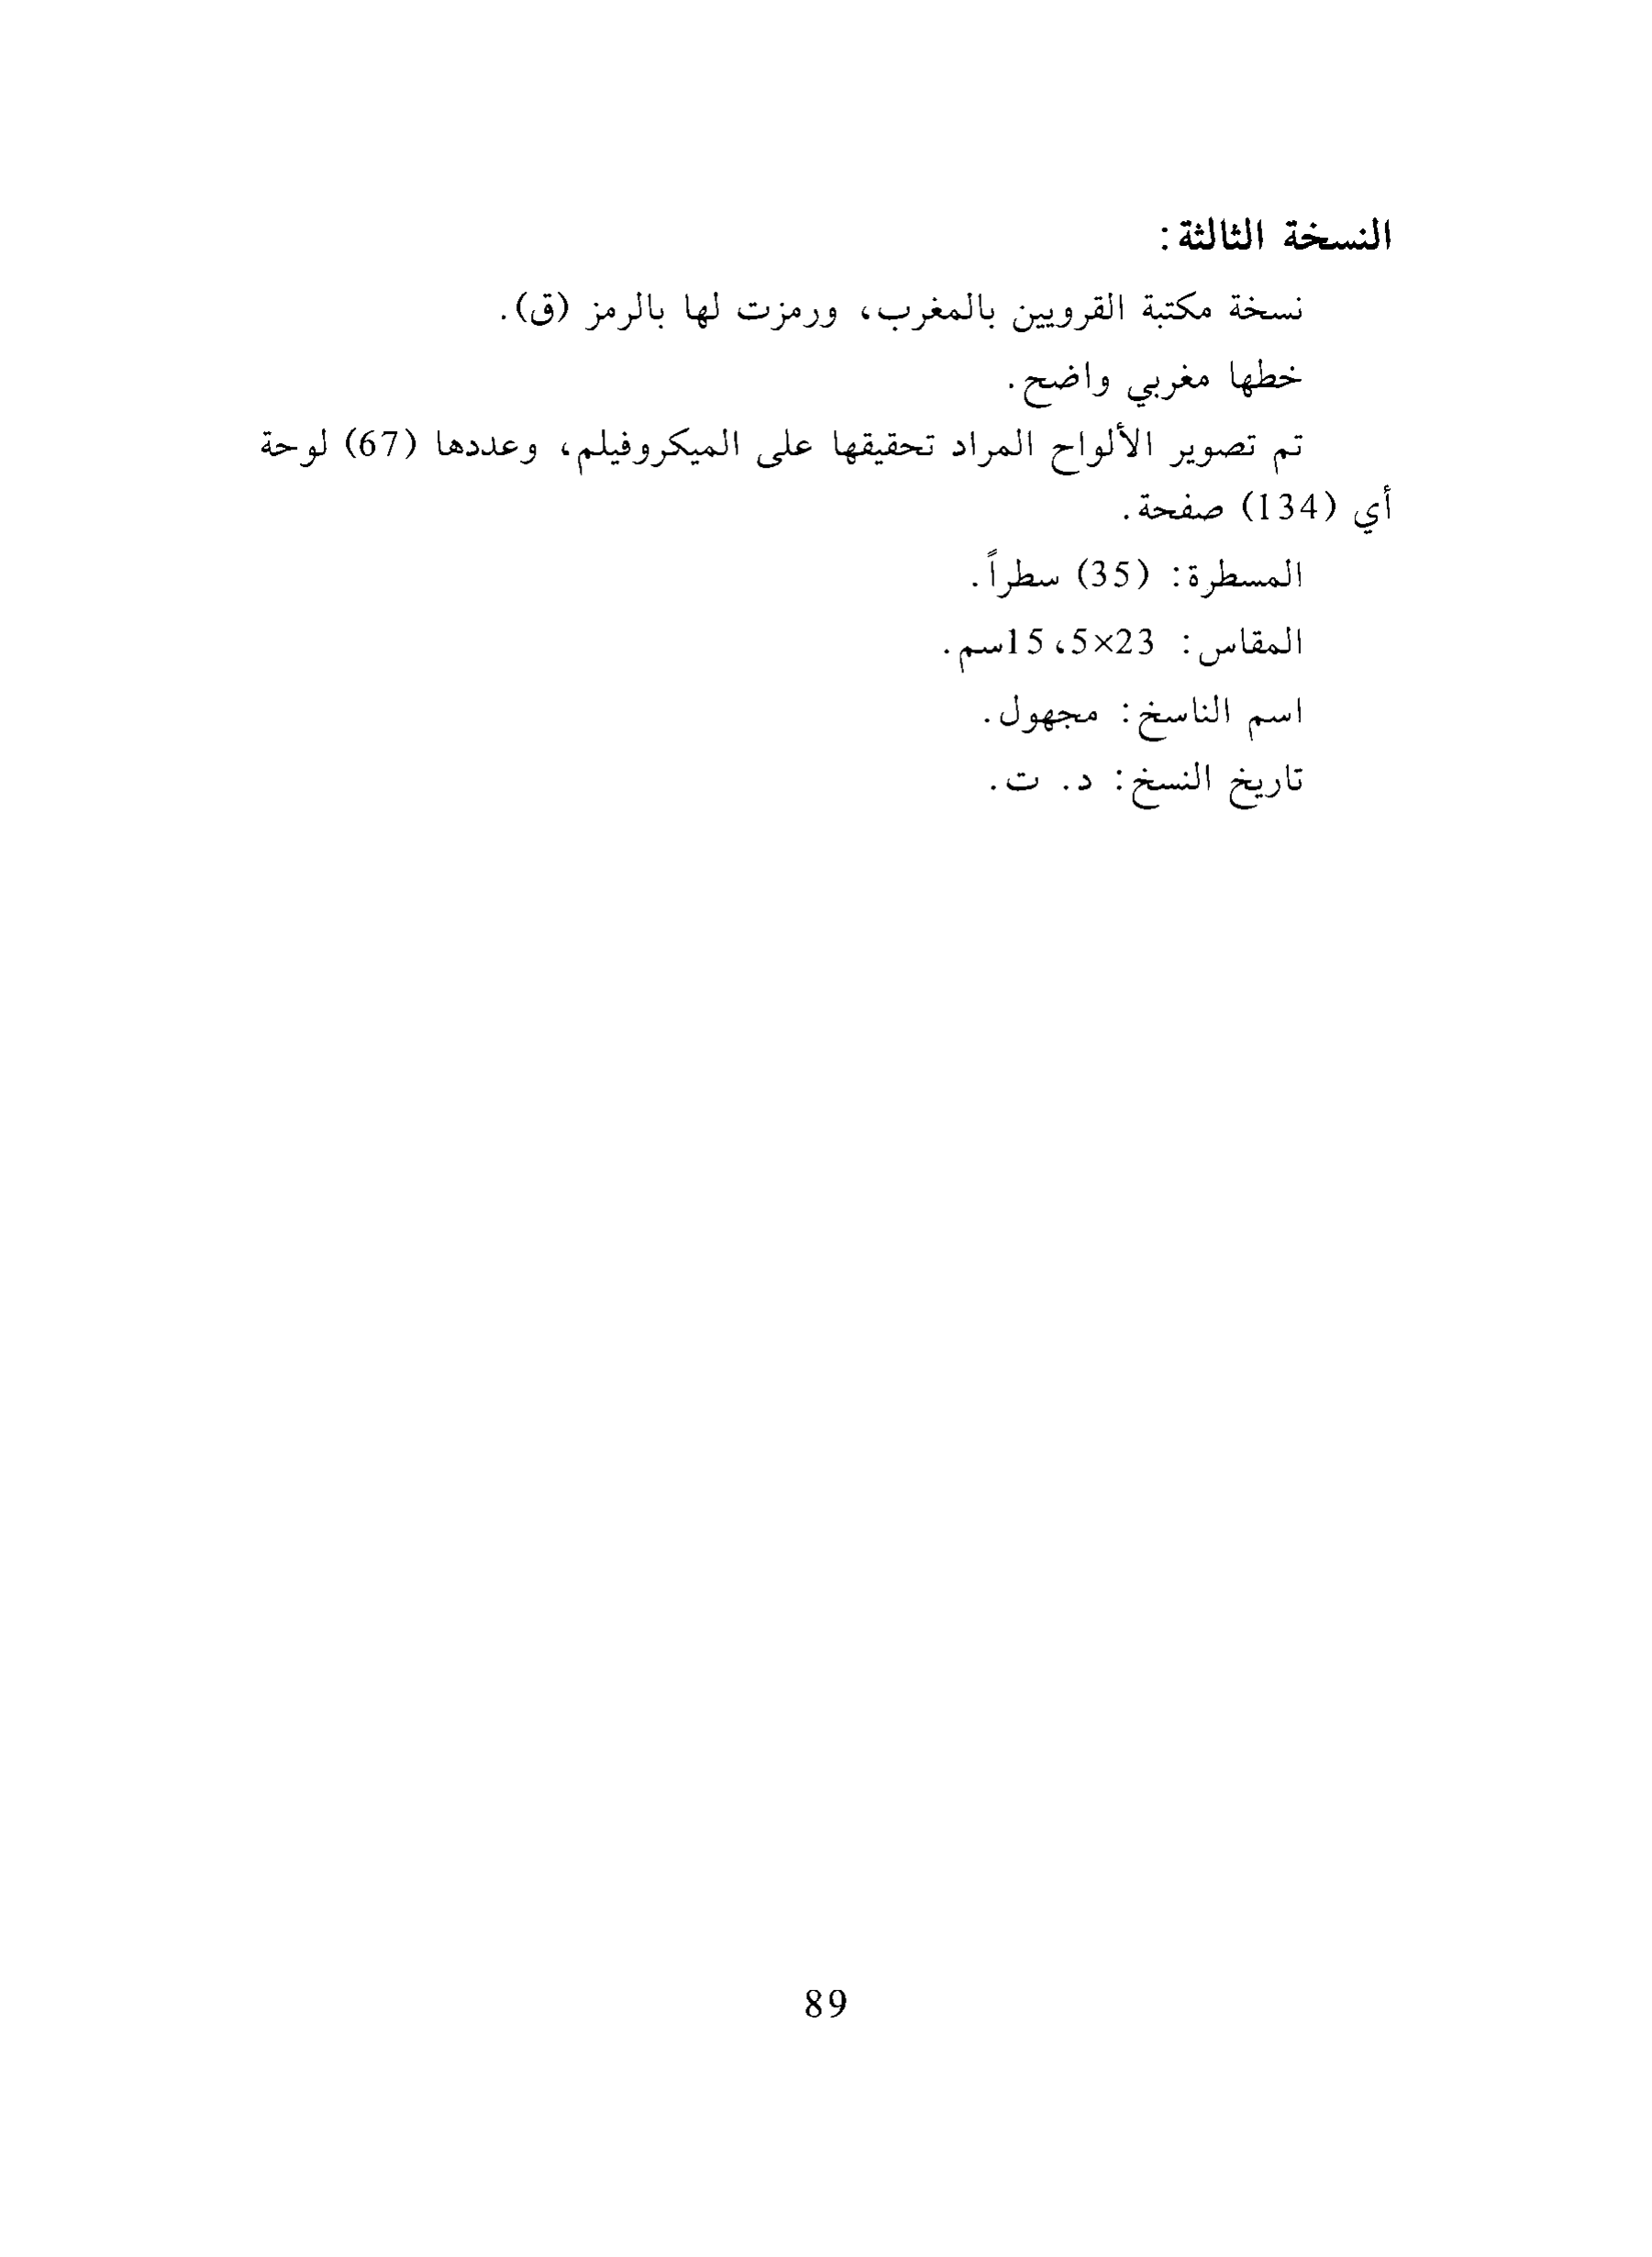 النسخة الثالثة:
نسخة مكتبة القرويين بالمغرب، ورمزت لها بالرمز (ق).
خطها مغربي واضح.
تم تصوير الألواح المراد تحقيقها على الميكروفيلم، وعددها (67) لوحة
أي (134) صفحة.
المسطرة: (35) سطراً.
المقاس: 23×5، 15سم.
اسم الناسخ: مجهول.
تاريخ النسخ: د. ت.
89